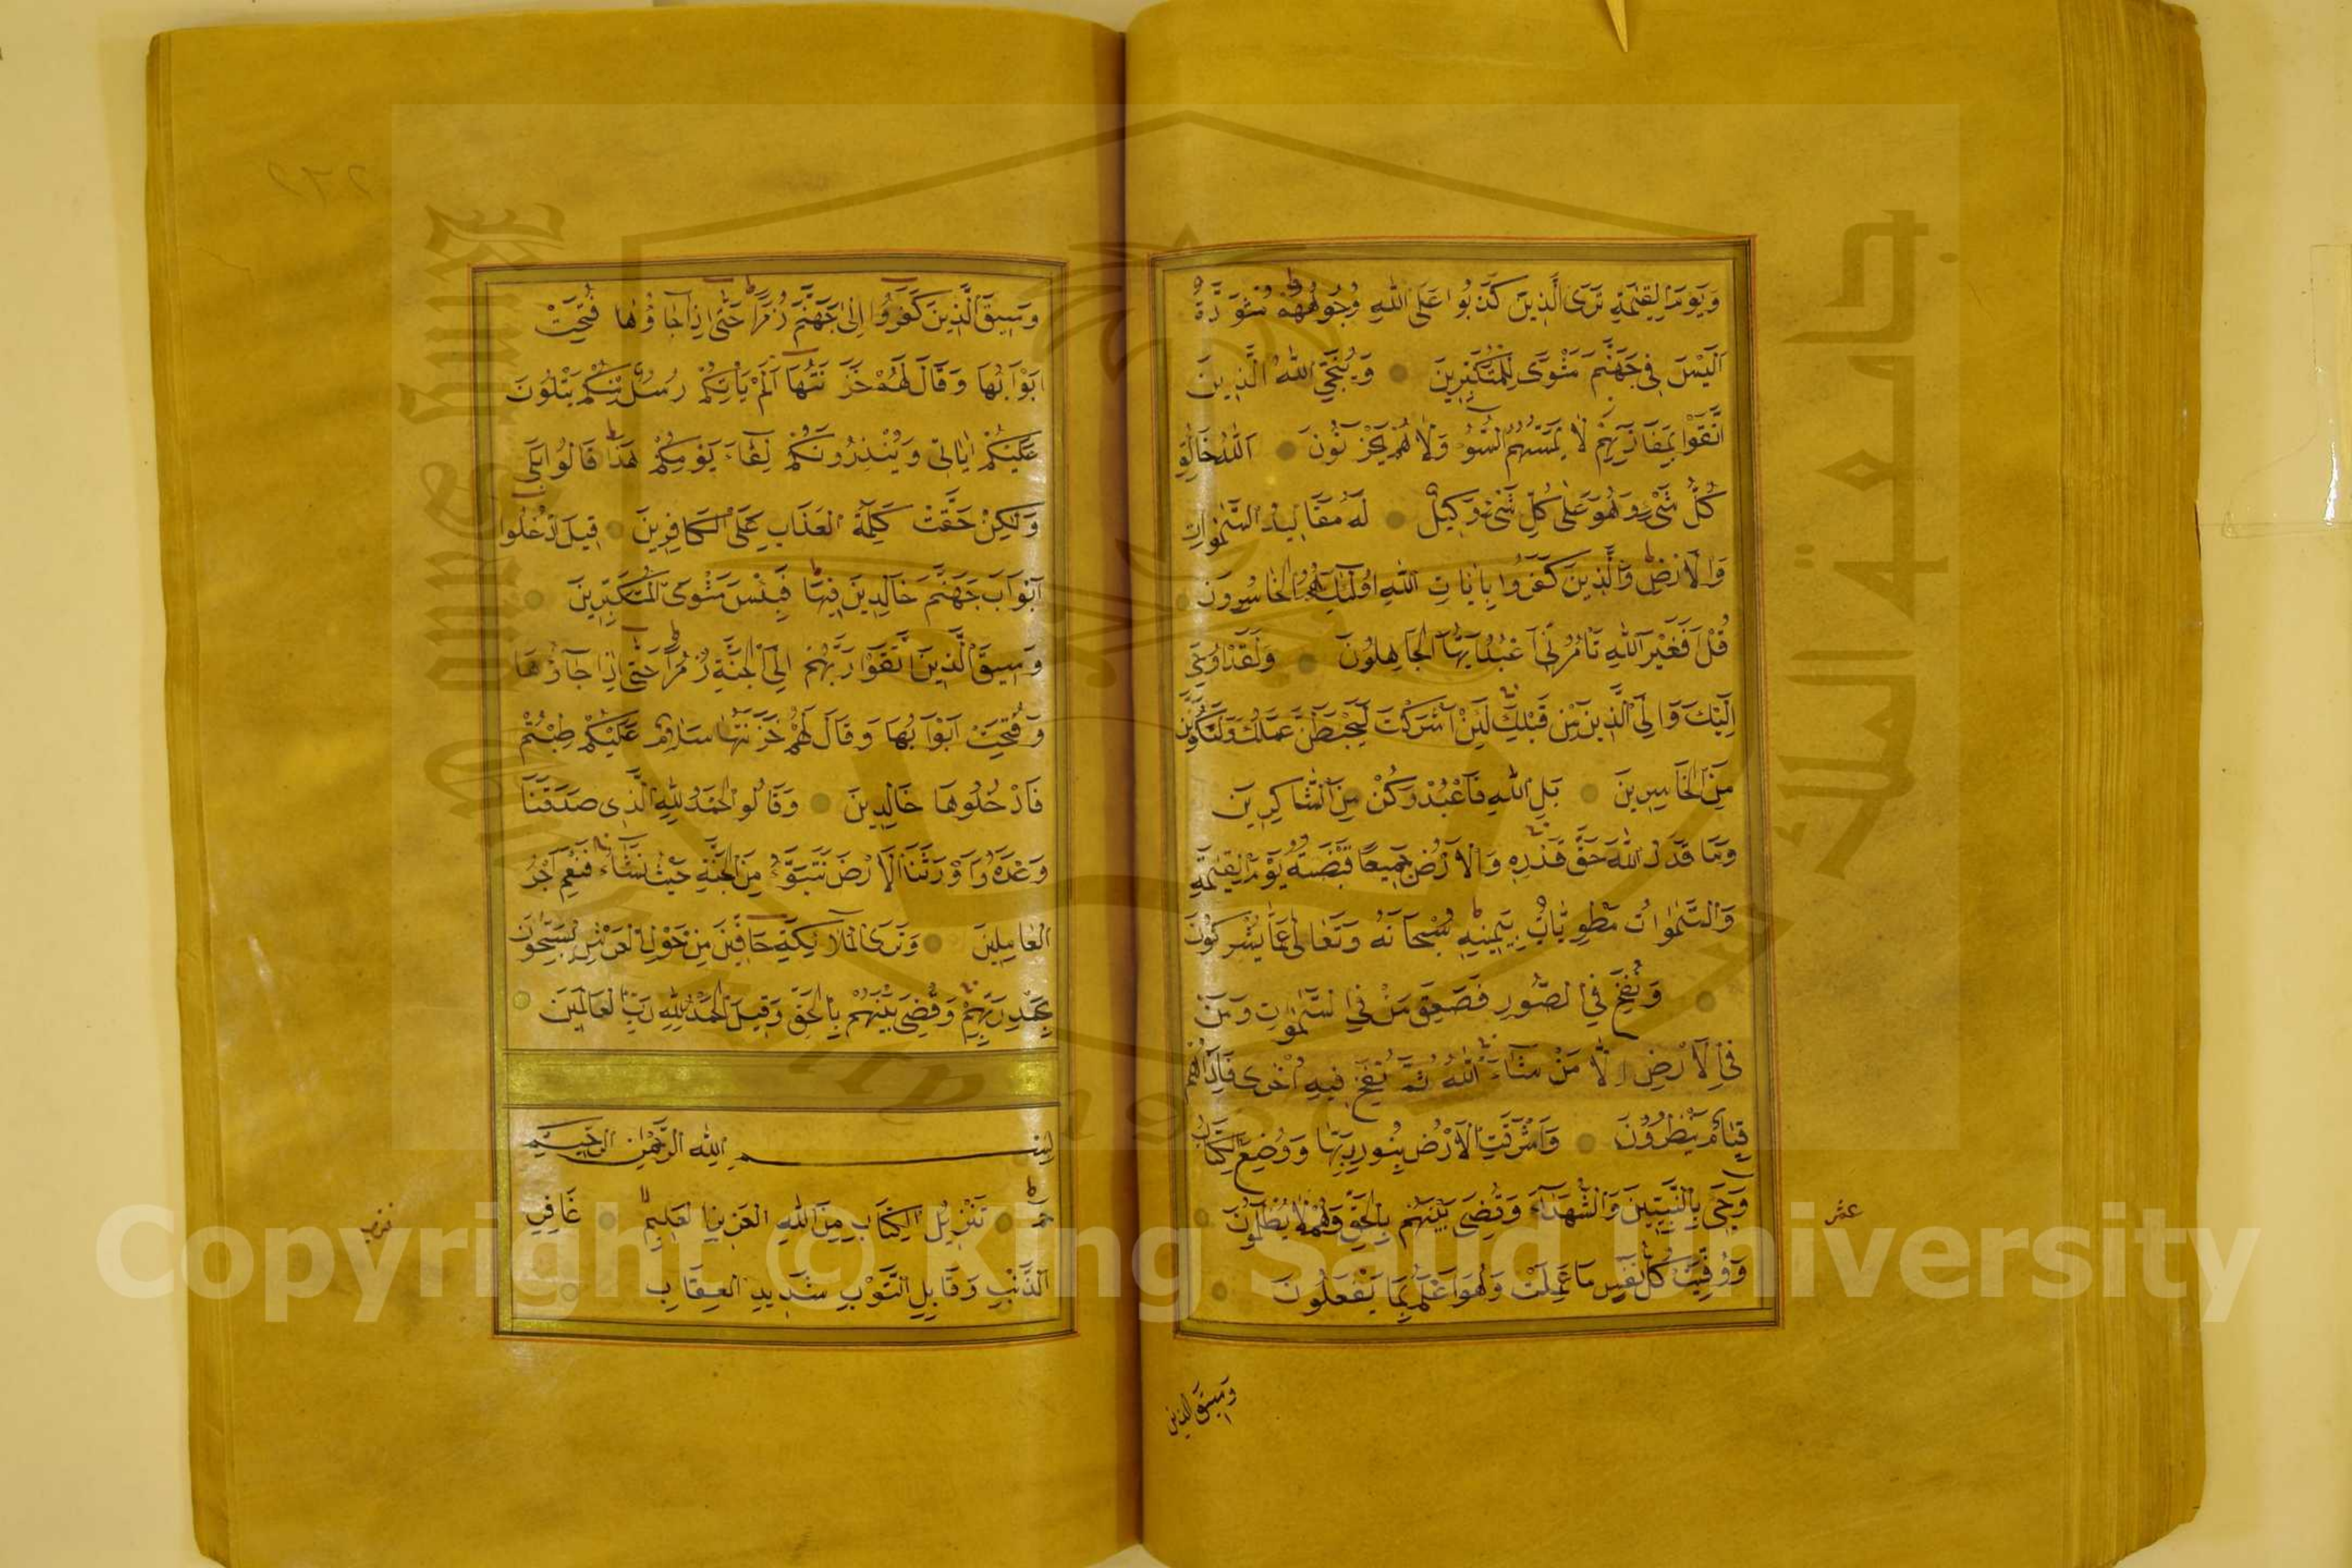 وَيَوْمَ الْقِيٰمَةِ تَرَى الَّذِينَ كَذَبُوا عَلَى اللّٰهِ وُجُوهُهُمْ مُسْوَدَّةٌ
اَلَيْسَ فِى جَهَنَّمَ مَثْوًى لِلْمُتَكَبِّرِينَ وَيُنَجِّى اللّٰهُ الَّذِينَ
اتَّقَوْا بِمَفَازَتِهِمْ لَا يَمَسُّهُمُ السُّوءُ وَلَا هُمْ يَحْزَنُونَ اَللّٰهُ خَالِقُ
كُلِّ شَىْءٍ وَهُوَ عَلٰى كُلِّ شَىْءٍ وَكِيلٌ لَهُ مَقَالِيدُ السَّمٰوَاتِ
وَالْاَرْضِ وَالَّذِينَ كَفَرُوا بِاٰيَاتِ اللّٰهِ اُولٰئِكَ هُمُ الْخَاسِرُونَ
قُلْ اَفَغَيْرَ اللّٰهِ تَأْمُرُنِّى اَعْبُدُ اَيُّهَا الْجَاهِلُونَ وَلَقَدْ اُوحِىَ
اِلَيْكَ وَاِلَى الَّذِينَ مِنْ قَبْلِكَ لَئِنْ اَشْرَكْتَ لَيَحْبَطَنَّ عَمَلُكَ وَلَتَكُونَنَّ
مِنَ الْخَاسِرِينَ بَلِ اللّٰهَ فَاعْبُدْ وَكُنْ مِنَ الشَّاكِرِينَ
وَمَا قَدَرُوا اللّٰهَ حَقَّ قَدْرِهِ وَالْاَرْضُ جَمِيعًا قَبْضَتُهُ يَوْمَ الْقِيٰمَةِ
وَالسَّمٰوَاتُ مَطْوِيَّاتٌ بِيَمِينِهِ سُبْحَانَهُ وَتَعَالٰى عَمَّا يُشْرِكُونَ
وَنُفِخَ فِى الصُّورِ فَصَعِقَ مَنْ فِى السَّمٰوَاتِ وَمَنْ
فِى الْاَرْضِ اِلَّا مَنْ شَاءَ اللّٰهُ ثُمَّ نُفِخَ فِيهِ اُخْرٰى فَاِذَا هُمْ
قِيَامٌ يَنْظُرُونَ وَاَشْرَقَتِ الْاَرْضُ بِنُورِ رَبِّهَا وَوُضِعَ الْكِتَابُ
وَجِىءَ بِالنَّبِيِّينَ وَالشُّهَدَاءِ وَقُضِىَ بَيْنَهُمْ بِالْحَقِّ وَهُمْ لَا يُظْلَمُونَ
عشر
وَوُفِّيَتْ كُلُّ نَفْسٍ مَا عَمِلَتْ وَهُوَ اَعْلَمُ بِمَا يَفْعَلُونَ
وَسِيقَ الَّذِينَ
وَسِيقَ الَّذِينَ كَفَرُوا اِلٰى جَهَنَّمَ زُمَرًا حَتّٰى اِذَا جَاؤُهَا فُتِحَتْ
اَبْوَابُهَا وَقَالَ لَهُمْ خَزَنَتُهَا اَلَمْ يَأْتِكُمْ رُسُلٌ مِنْكُمْ يَتْلُونَ
عَلَيْكُمْ اٰيَاتِ وَيُنْذِرُونَكُمْ لِقَاءَ يَوْمِكُمْ هٰذَا قَالُوا بَلٰى
وَلٰكِنْ حَقَّتْ كَلِمَةُ الْعَذَابِ عَلَى الْكَافِرِينَ قِيلَ ادْخُلُوا
اَبْوَابَ جَهَنَّمَ خَالِدِينَ فِيهَا فَبِئْسَ مَثْوَى الْمُتَكَبِّرِينَ
وَسِيقَ الَّذِينَ اتَّقَوْا رَبَّهُمْ اِلَى الْجَنَّةِ زُمَرًا حَتّٰى اِذَا جَاؤُهَا
وَفُتِحَتْ اَبْوَابُهَا وَقَالَ لَهُمْ خَزَنَتُهَا سَلَامٌ عَلَيْكُمْ طِبْتُمْ
فَادْخُلُوهَا خَالِدِينَ وَقَالُوا الْحَمْدُ لِلّٰهِ الَّذِى صَدَقَنَا
وَعْدَهُ وَاَوْرَثَنَا الْاَرْضَ نَتَبَوَّءُ مِنَ الْجَنَّةِ حَيْثُ نَشَاءُ فَنِعْمَ اَجْرُ
الْعَامِلِينَ وَتَرَى الْمَلَائِكَةَ حَافِّينَ مِنْ حَوْلِ الْعَرْشِ يُسَبِّحُونَ
بِحَمْدِ رَبِّهِمْ وَقُضِىَ بَيْنَهُمْ بِالْحَقِّ وَقِيلَ الْحَمْدُ لِلّٰهِ رَبِّ الْعَالَمِينَ
بِسْمِ اللّٰهِ الرَّحْمٰنِ الرَّحِيمِ
حٰمٓ تَنْزِيلُ الْكِتَابِ مِنَ اللّٰهِ الْعَزِيزِ الْعَلِيمِ غَافِرِ
الذَّنْبِ وَقَابِلِ التَّوْبِ شَدِيدِ الْعِقَابِ
جامعة الملك سعود
King Saud University
Copyright © King Saud University